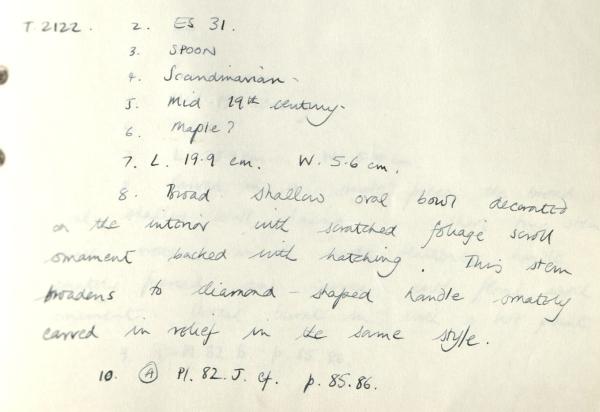 T.2122. 2. ES 31.
3. SPOON
4. Scandinavian.
5. Mid 19th century.
6. Maple?
7. L. 19.9 cm. W. 5.6 cm.
8. Broad shallow oval bowl decorated
on the interior with scratched foliage scroll
ornament backed with hatching. This stem
broadens to diamond-shaped handle ornately
carved in relief in the same style.
10. A Pl. 82. J. cf. p. 85.86.